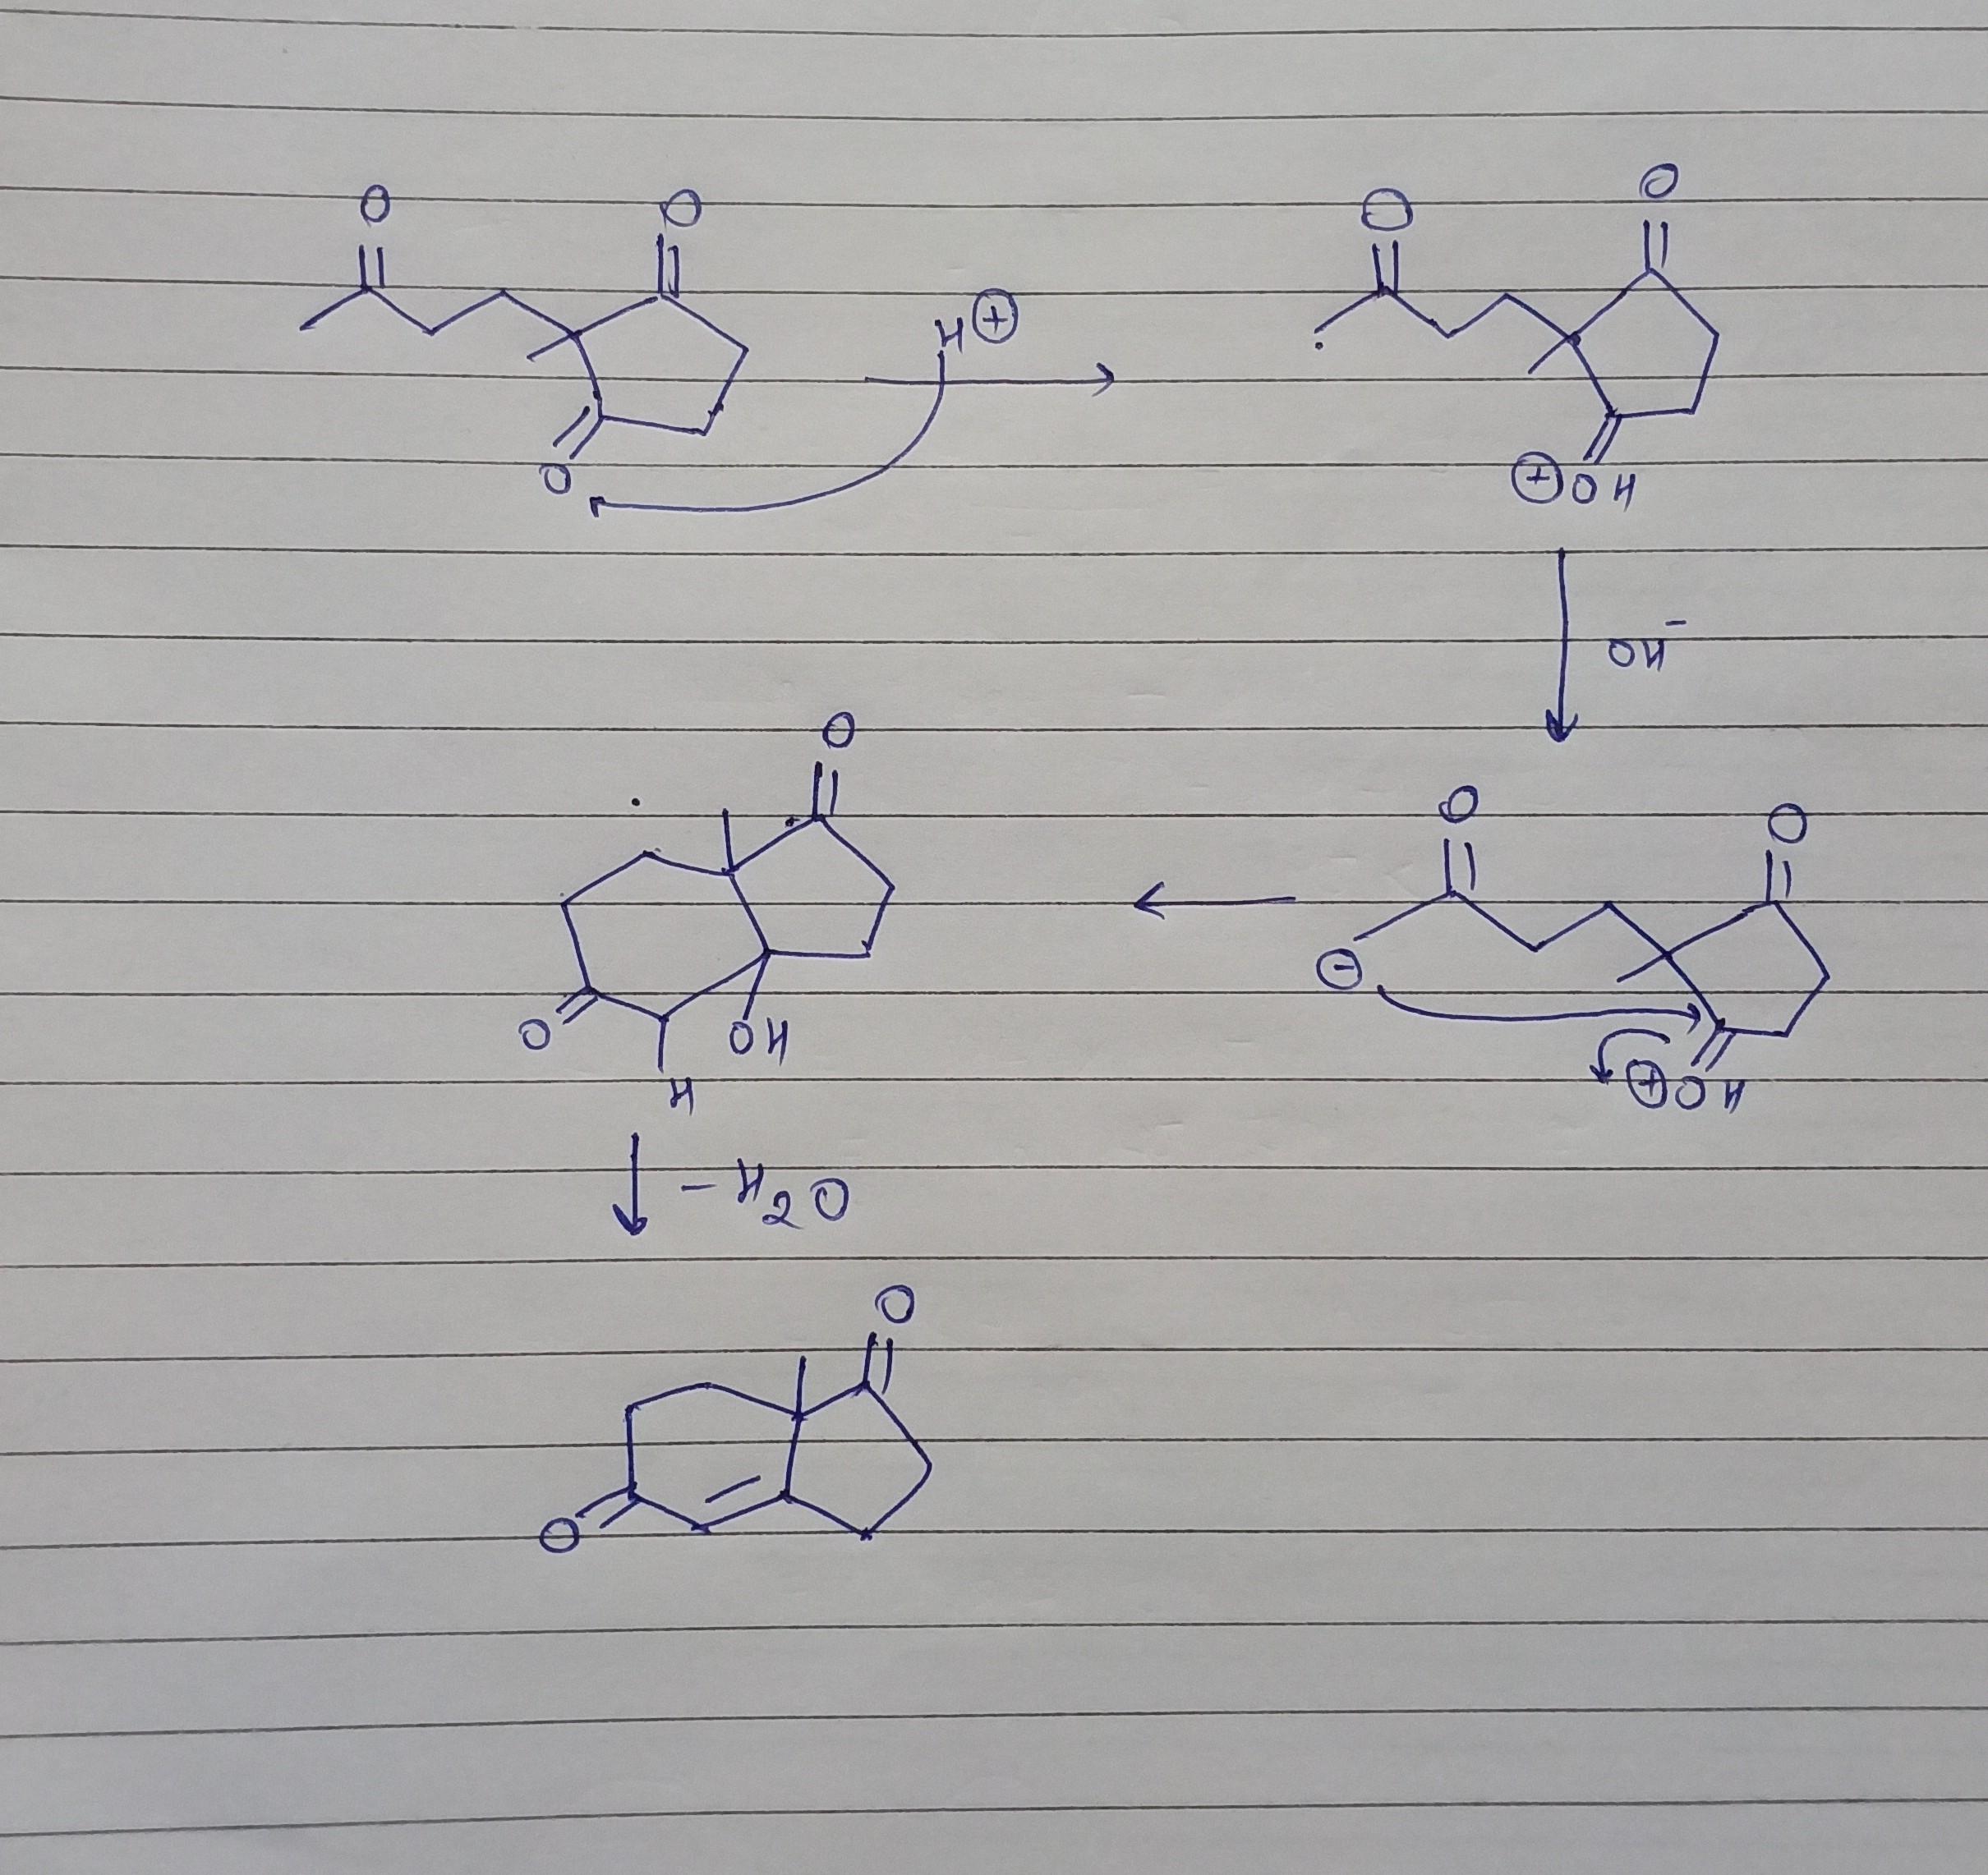 O O
H⊕
O
O O
⊕OH
OH⁻
O O
⊕OH
⊖
O
O OH
H
-H₂O
O
O